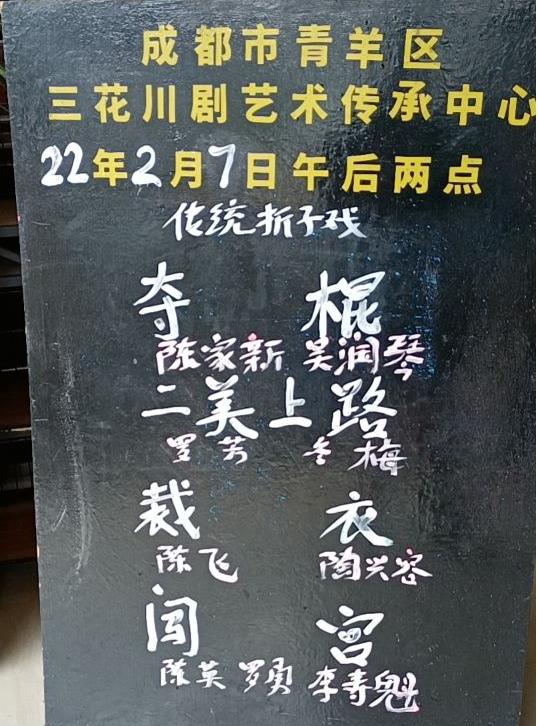 成都市青羊区
三花川剧艺术传承中心
22年2月7日午后两点
传统折子戏
夺 棍
陈家新 吴润琴
二美上路
罗芳 冬梅
裁 衣
陈飞 陶兴容
闯 宫
陈英 罗勇 李寿魁